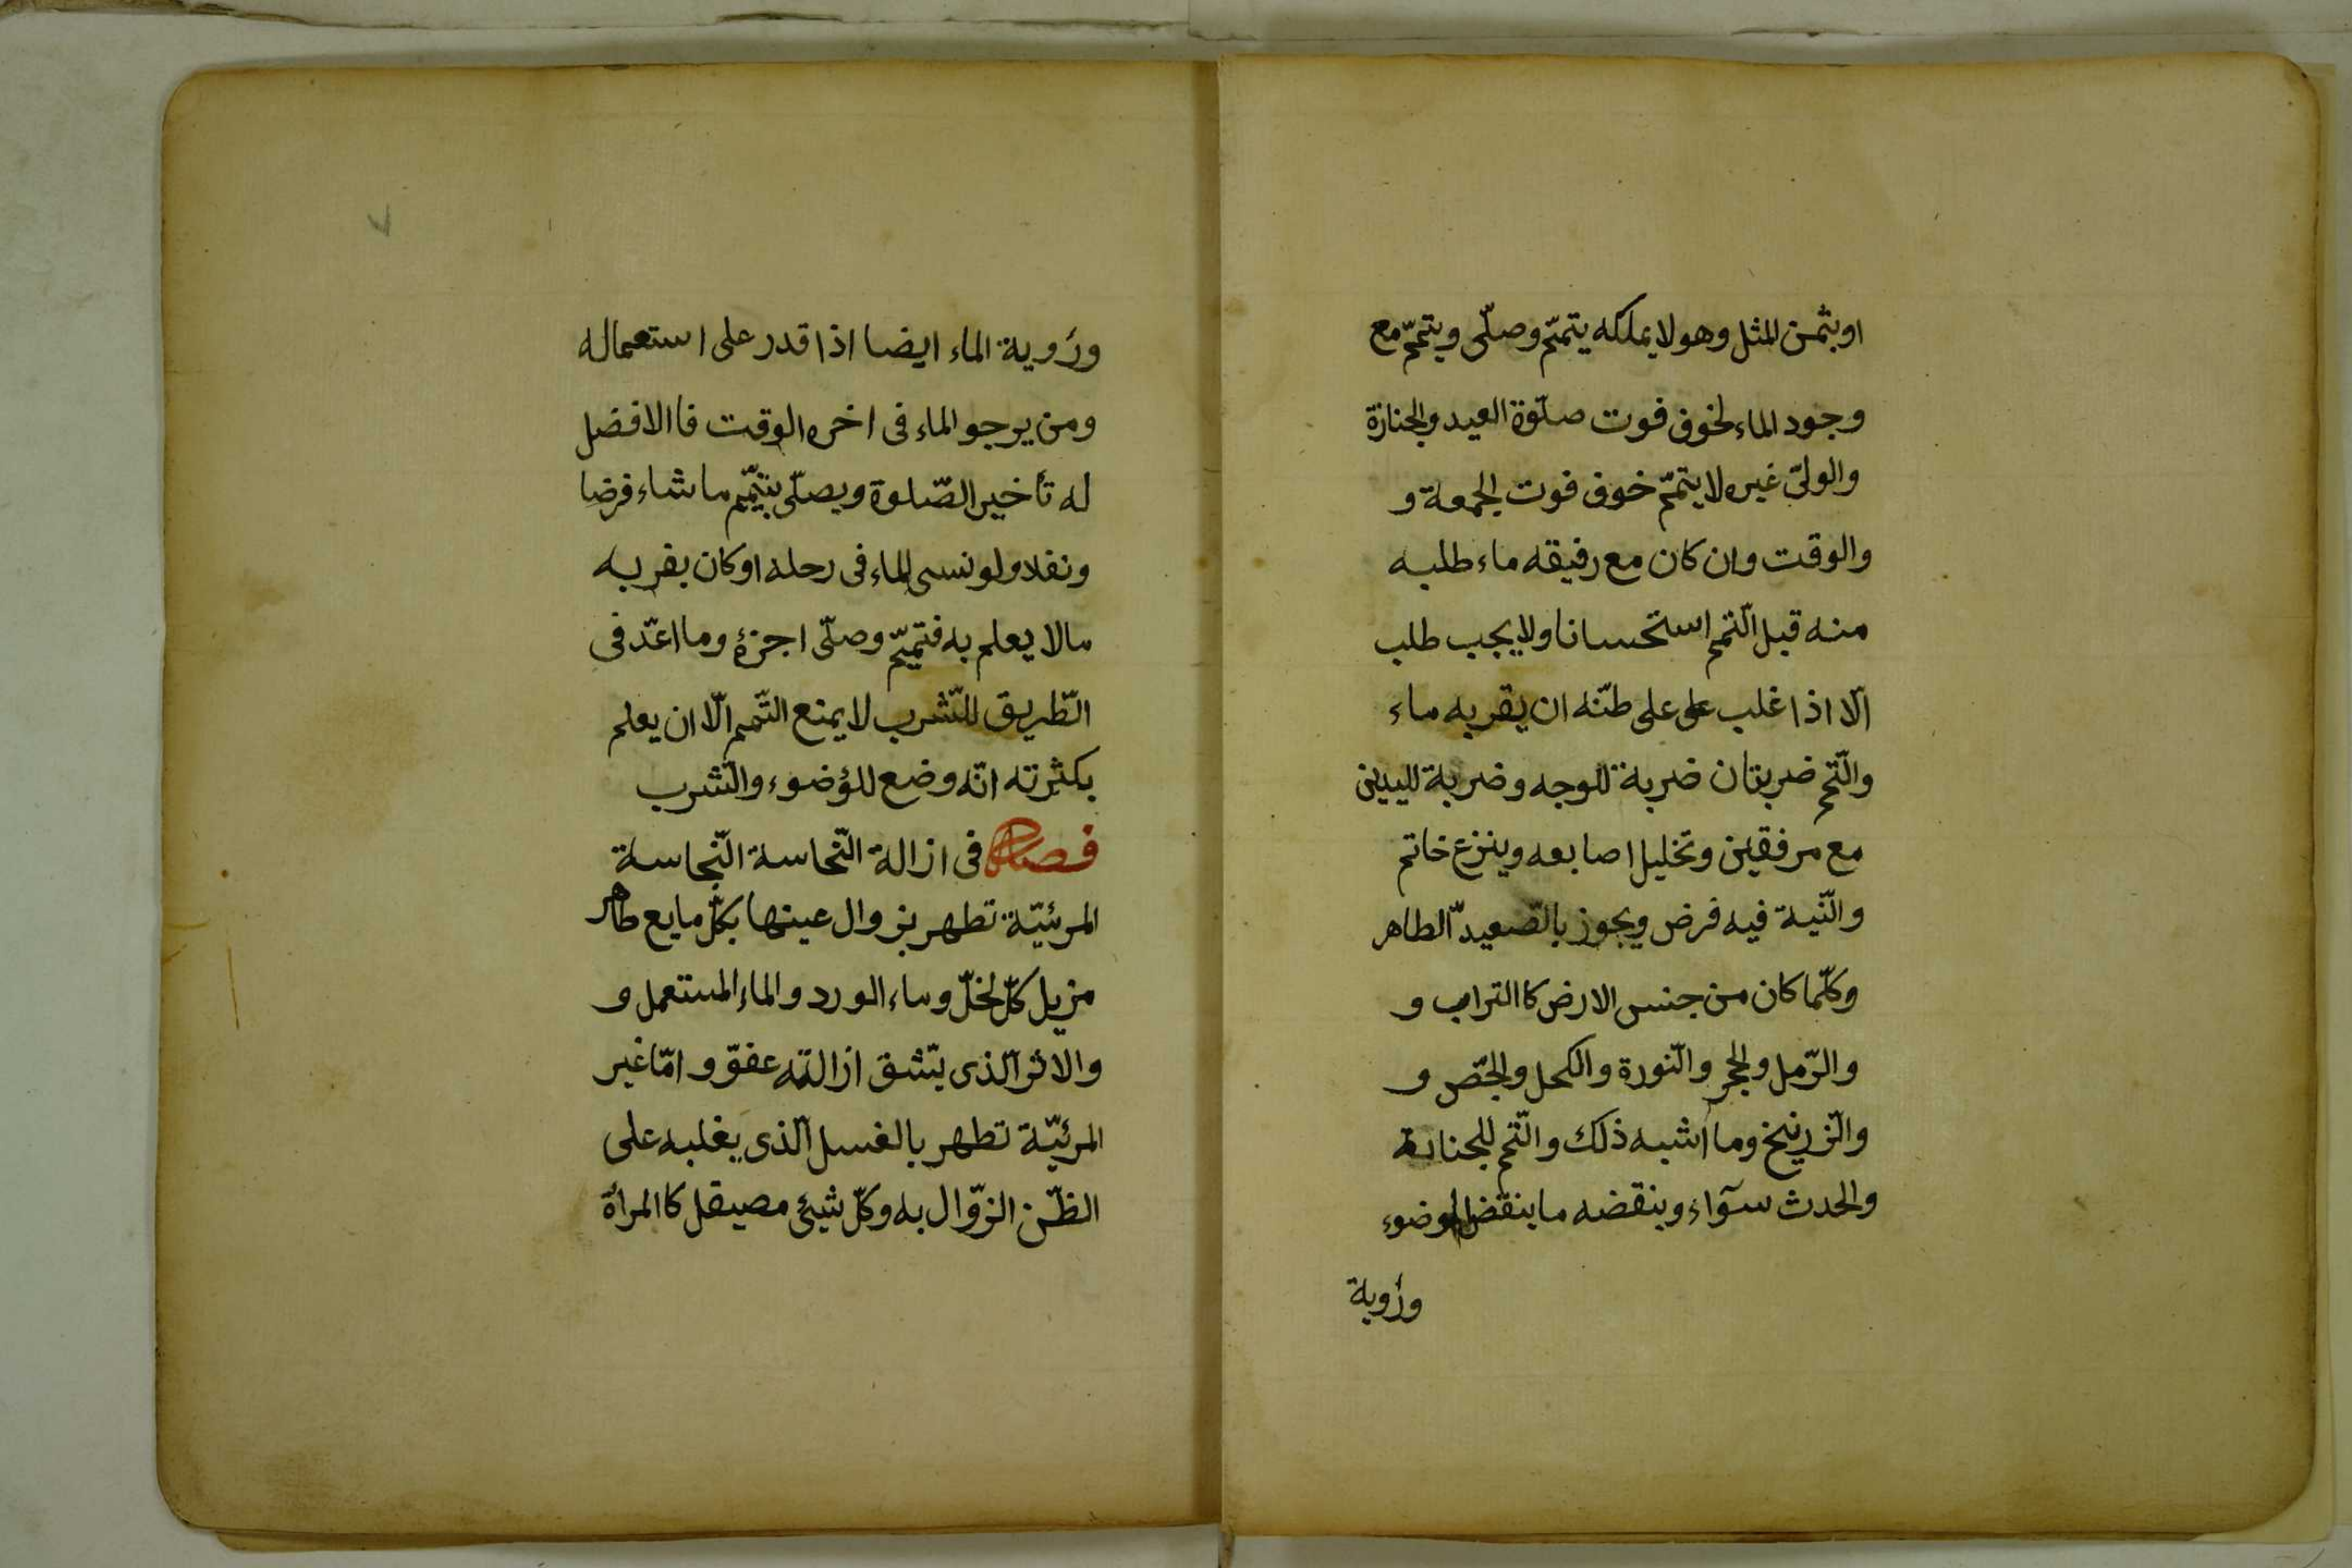 او بثمن المثل وهو لا يملكه يتمّم وصلّى ويتمّم مع
وجود الماء لخوف فوت صلّوة العيد والجنازة
والولىّ غيره لا يتمّم خوف فوت الجمعة و
والوقت وان كان مع رفيقه ماء طلبه
منه قبل التّمم استحسانا ولا يجب طلب
الّا اذا غلب على على طنّه ان يقربه ماء
والتّمم ضربتان ضربة للوجه وضربة لليدين
مع مرفقين وتخليل اصابعه وينزع خاتم
والنّية فيه فرض ويجوز بالصّعيد الطّاهر
وكلّما كان من جنس الارض كا التراب و
والرّمل والحجر والنّورة والكحل والجصّ و
والزّرنيخ وما اشبه ذلك والتّمم للجنابة
والحدث سوآء وينقضه ما ينقض الوضوء
ورؤية
ورؤية الماء ايضا اذا قدر على استعماله
ومن يرجو الماء فى اخره الوقت فا الافضل
له تأخير الصّلوة ويصلّى بتيمّم ما شاء فرضا
ونفلا ولو نسى الماء فى رحله او كان بقربه
مالا يعلم به فتيمّم وصلّى اجزءه وما اعدّ فى
الطّريق للشّرب لا يمنع التّمم الّا ان يعلم
بكثرته انّه وضع للوضوء والشّرب
فصل فى ازالة النّحاسة النّجاسة
المرئيّة تطهر بزوال عينها بكلّ مايع طاهر
مزيل كلّ لخلّ وماء الورد والماء المستعمل و
والاثر الّذى يتّشق ازالته عفوّ و امّا غير
المرئيّة تطهر بالغسل الّذى يغلبه على
الظّن الزوّال به وكلّ شيئ مصيقل كا المرأة